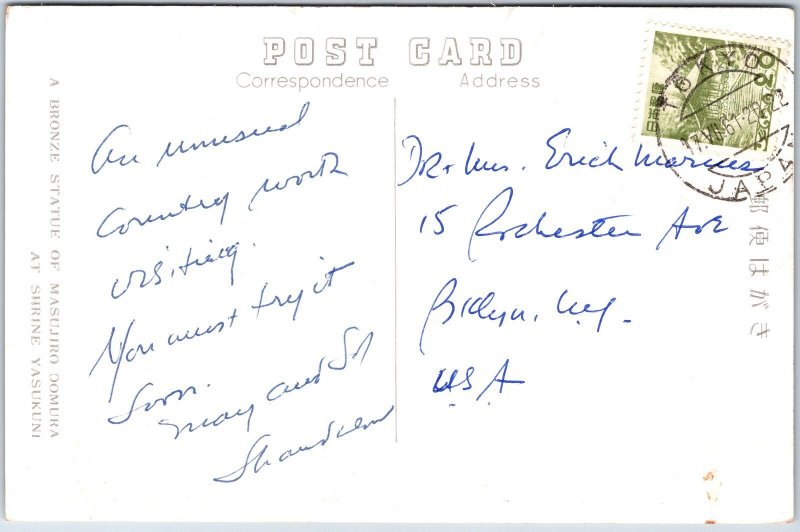 POST CARD
Correspondence
Address
A BRONZE STATUE OF MASUJIRO OOMURA
AT SHRINE YASUKUNI
An unusual
Country worth
visiting.
You must try it
Soon.
May and Sol
Dr + Mrs. Erich Marcus
15 Rochester Ave
Bklyn. N.Y.
USA
TOKYO
JAPAN
郵便はがき